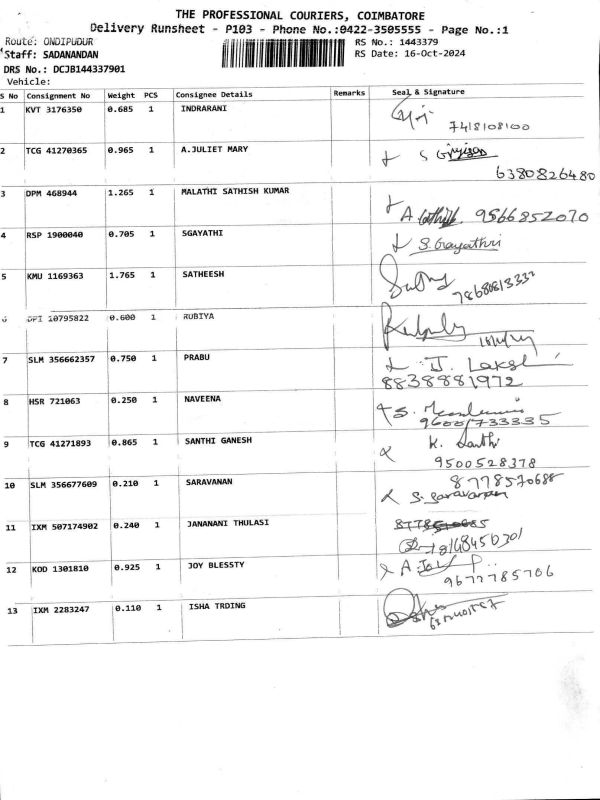 THE PROFESSIONAL COURIERS, COIMBATORE
Delivery Runsheet - P103 - Phone No.:0422-3505555 - Page No.:1
Route: ONDIPUDUR RS No.: 1443379
Staff: SADANANDAN RS Date: 16-Oct-2024
DRS No.: DCJB144337901
Vehicle:
S No Consignment No Weight PCS Consignee Details Remarks Seal & Signature
1 KVT 3176350 0.685 1 INDRARANI
7418108100
2 TCG 41270365 0.965 1 A.JULIET MARY
6380826480
3 DPM 468944 1.265 1 MALATHI SATHISH KUMAR
A 9566852070
4 RSP 1900040 0.705 1 SGAYATHI
S. Gayathri
5 KMU 1169363 1.765 1 SATHEESH
6 DPI 10795822 0.600 1 RUBIYA
7 SLM 356662357 0.750 1 PRABU
J. Lakshi
8838881972
8 HSR 721063 0.250 1 NAVEENA
96001733335
9 TCG 41271893 0.865 1 SANTHI GANESH
K. Santhi
9500528378
10 SLM 356677609 0.210 1 SARAVANAN
8778570688
S. Saravanan
11 IXM 507174902 0.240 1 JANANANI THULASI
12 KOD 1301810 0.925 1 JOY BLESSTY
A. Joy P..
9677785706
13 IXM 2283247 0.110 1 ISHA TRDING